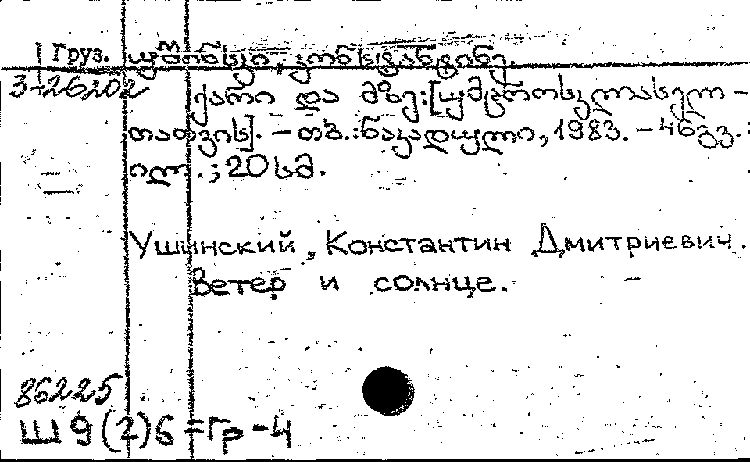 Груз. უშინსკი, კონსტანტინე.
3-26202 ქარი და მზე: [უმცროსკლასელ-
თათვის]. – თბ.: ნაკადული, 1983. – 46გვ.:
ილ.; 20 სმ.
Ушинский, Константин Дмитриевич.
Ветер и солнце.
86225
Ш 9(2)6=Гр-4